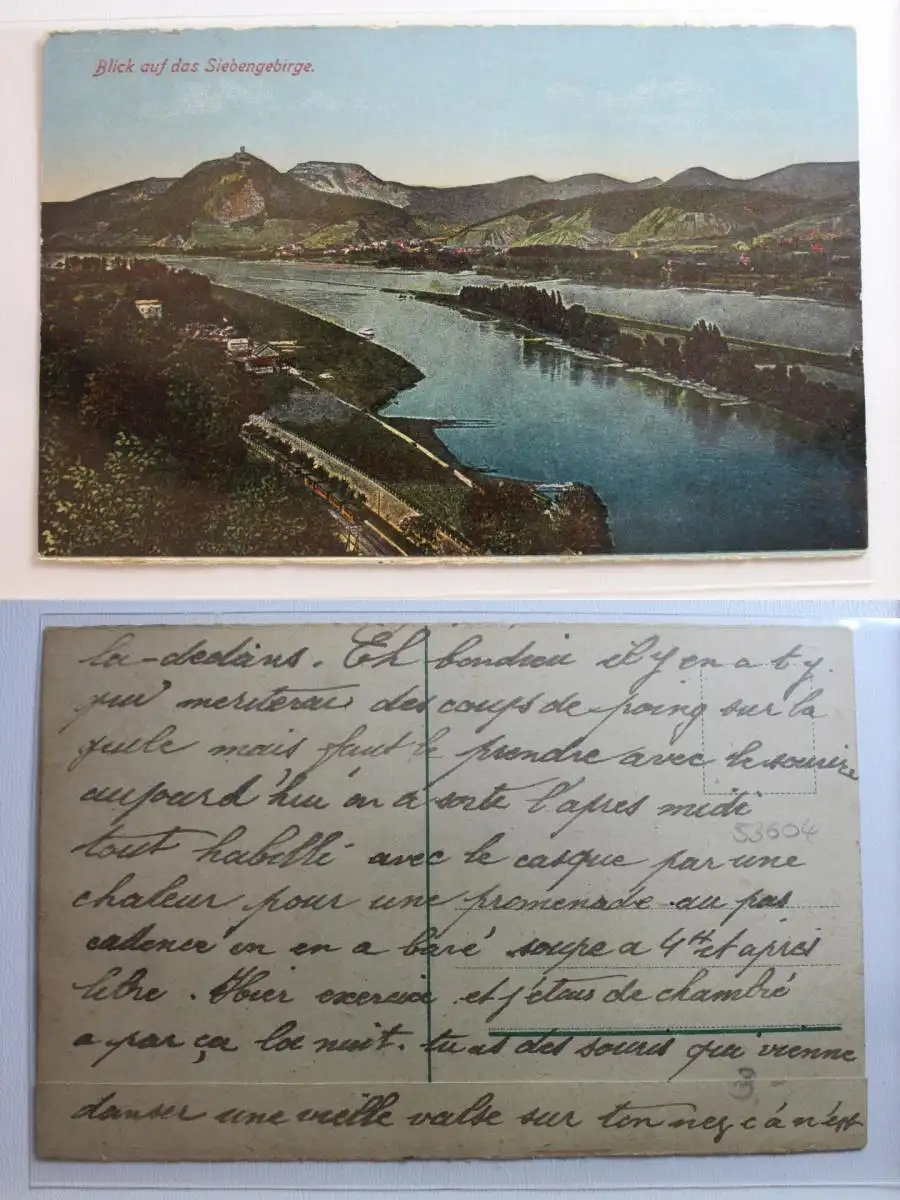 Blick auf das Siebengebirge.
la-dedans. Eh bondieu il y en a t y
qui meriterai des coups de poing sur la
guele mais faut le prendre avec le sourire
aujourd'hui on a sorte l'apres midi
tout habillé avec le casque par une
chaleur pour une promenade au pas
cadencé on en a bavé soupe a 4H et apres
libre. Hier exercice et j'étais de chambré
a par ça la nuit. tu as des souris qui vienne
danser une vielle valse sur ton nez ça n'est
53604